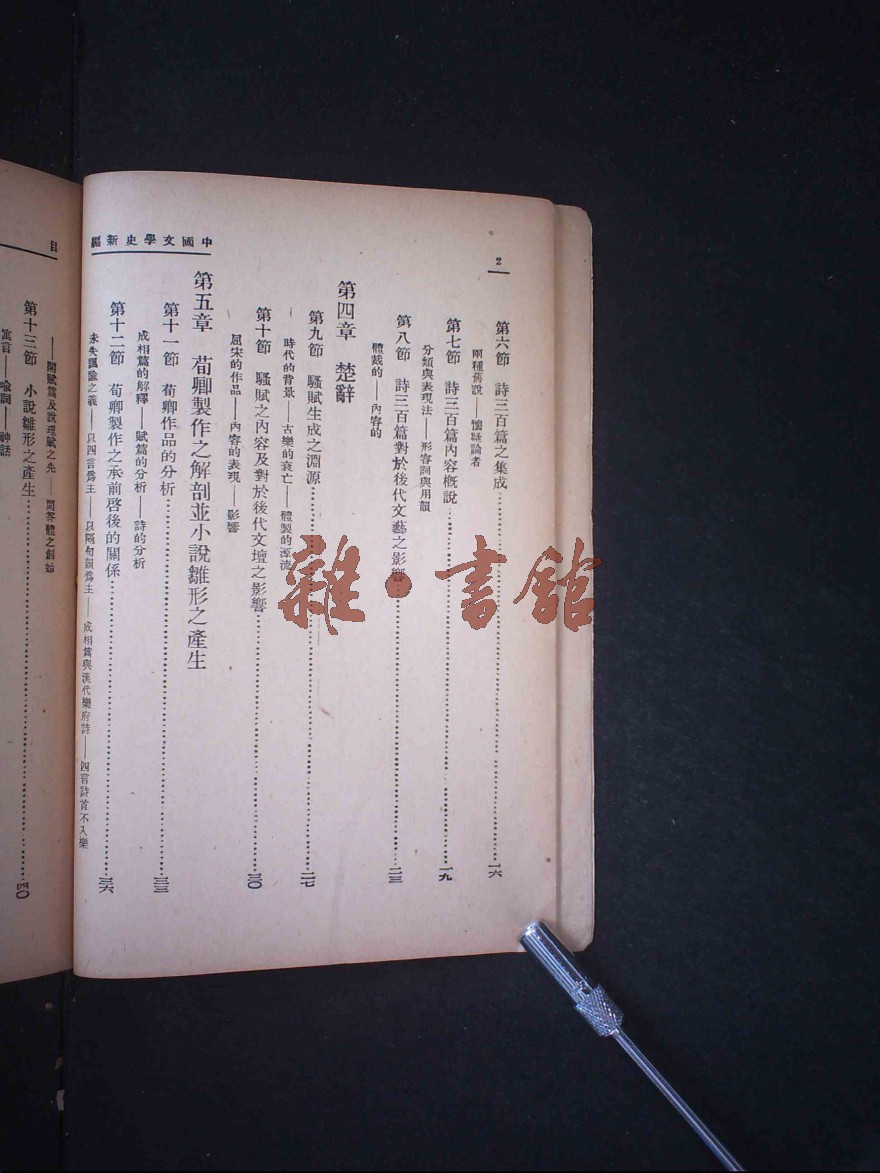 中國文學史新編
2
第六節 詩三百篇之集成……一六
兩種舊說——懷疑論者
第七節 詩三百篇內容概說……一九
分類與表現法——形容詞與用韻
第八節 詩三百篇對於後代文藝之影響……二三
體裁的——內容的
第四章 楚辭
第九節 騷賦生成之淵源……二七
時代的背景——古樂的衰亡——體製的源流
第十節 騷賦之內容及對於後代文壇之影響……三〇
屈宋的作品——內容的表現——影響
第五章 荀卿製作之解剖並小說雛形之產生
第十一節 荀卿作品的分析……三三
成相篇的解釋——賦篇的分析——詩的分析
第十二節 荀卿製作之承前啓後的關係……三六
未失諷諭之義——以四言爲主——以隔句韻爲主——成相篇與漢代樂府詩——四言詩首不入樂
目
——開賦篇及說理賦之先——問答體之創始
第十三節 小說雛形之產生……四〇
寓言——喩詞——神話
雜·書館